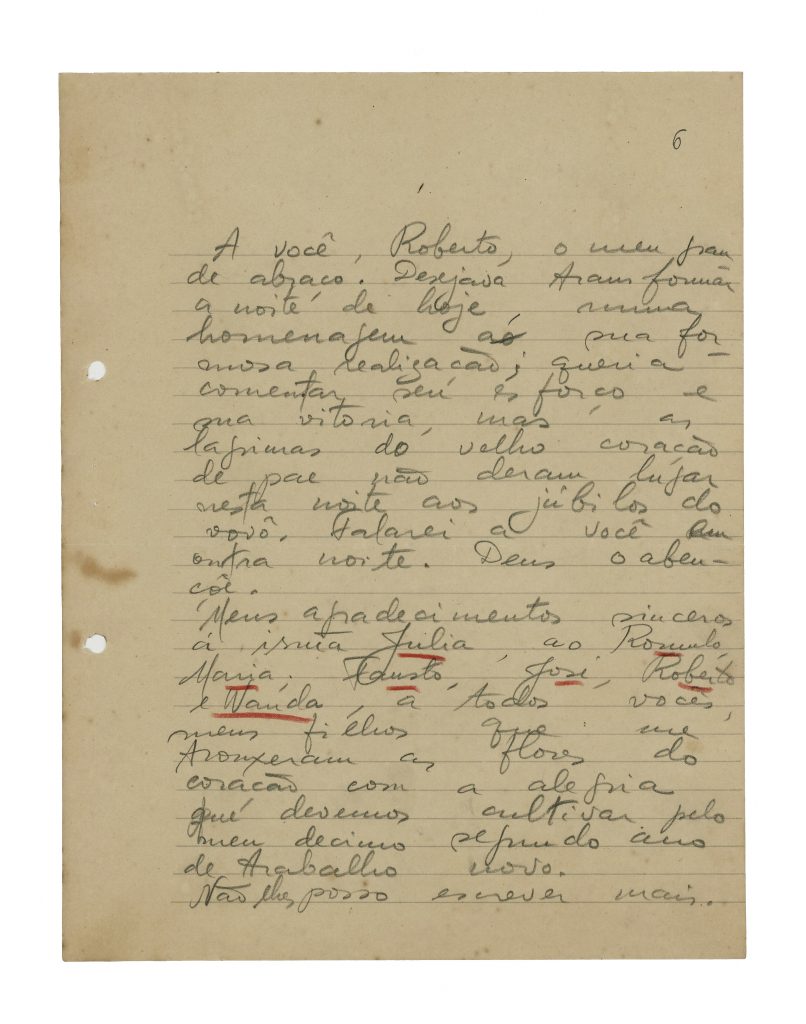 6
A você, Roberto, o meu gran
de abraço. Desejava transformar
a noite de hoje, numa
homenagem ao sua for-
mosa realização; queria
comentar seu esforço e
sua vitoria, mas as
lagrimas do velho coração
de pae não deram lugar
nesta noite aos júbilos do
vovô. Falarei a você em
outra noite. Deus o aben-
çôe.
Meus agradecimentos sinceros
á irmã Júlia, ao Romulo,
Maria, Fausto, José, Roberto
e Wanda, a todos vocês,
meus filhos que me
trouxeram as flores do
coração com a alegria
que devemos cultivar pelo
meu decimo segundo ano
de trabalho novo.
Não lhes posso escrever mais.